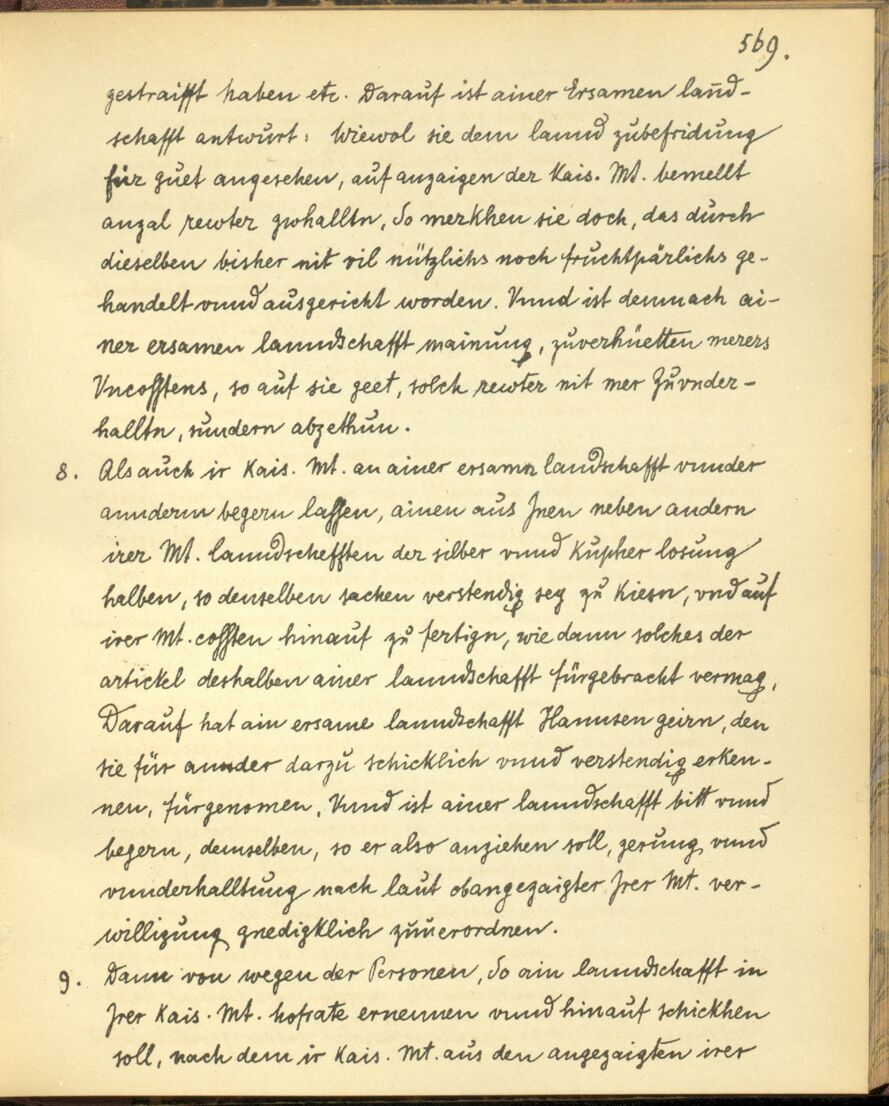 569.
gestraifft haben etc. Darauf ist ainer Ersamen land-
schafft antwurt: Wiewol sie dem lannd zubefridung
für guet angesehen, auf anzaigen der Kais. Mt. bemellt
anzal rewter zwhalltn, So merkhen sie doch, das durch
dieselben bisher nit vil nützlichs noch fruchtpärlichs ge-
handelt vnnd ausgericht worden. Vnnd ist demnach ai-
ner ersamen lanndschafft mainung, zuverhüetten merers
Vncosstens, so auf sie geet, solch rewter nit mer Zuvnder-
halltn, sundern abzethun.
8. Als auch ir Kais. Mt. an ainer ersamn landschafft vnnder
annderm begern lassen, ainen aus Jnen neben andern
irer Mt. lanndschefften der silber vnnd Kupher losung
halben, so denselben sachen verstendig sey zu Kiesn, vnd auf
irer Mt. cossten hinauf zu fertign, wie dann solches der
artickel deshalben ainer lanndschafft fürgebracht vermag,
Darauf hat ain ersame lanndschafft Hannsen geirn, den
sie für annder darzu schicklich vnnd verstendig erken-
nen, fürgenomen, Vnnd ist ainer lanndschafft bitt vnnd
begern, demselben, so er also anziehen soll, zerung vnnd
vnnderhalltung nach laut obangezaigter Jrer Mt. ver-
willigung gnedigklich zuuerordnen.
9. Dann von wegen der Personen, So ain lanndschafft in
Jrer Kais. Mt. hofrate ernennen vnnd hinauf schickhen
soll, nach dem ir Kais. Mt. aus den angezaigten irer